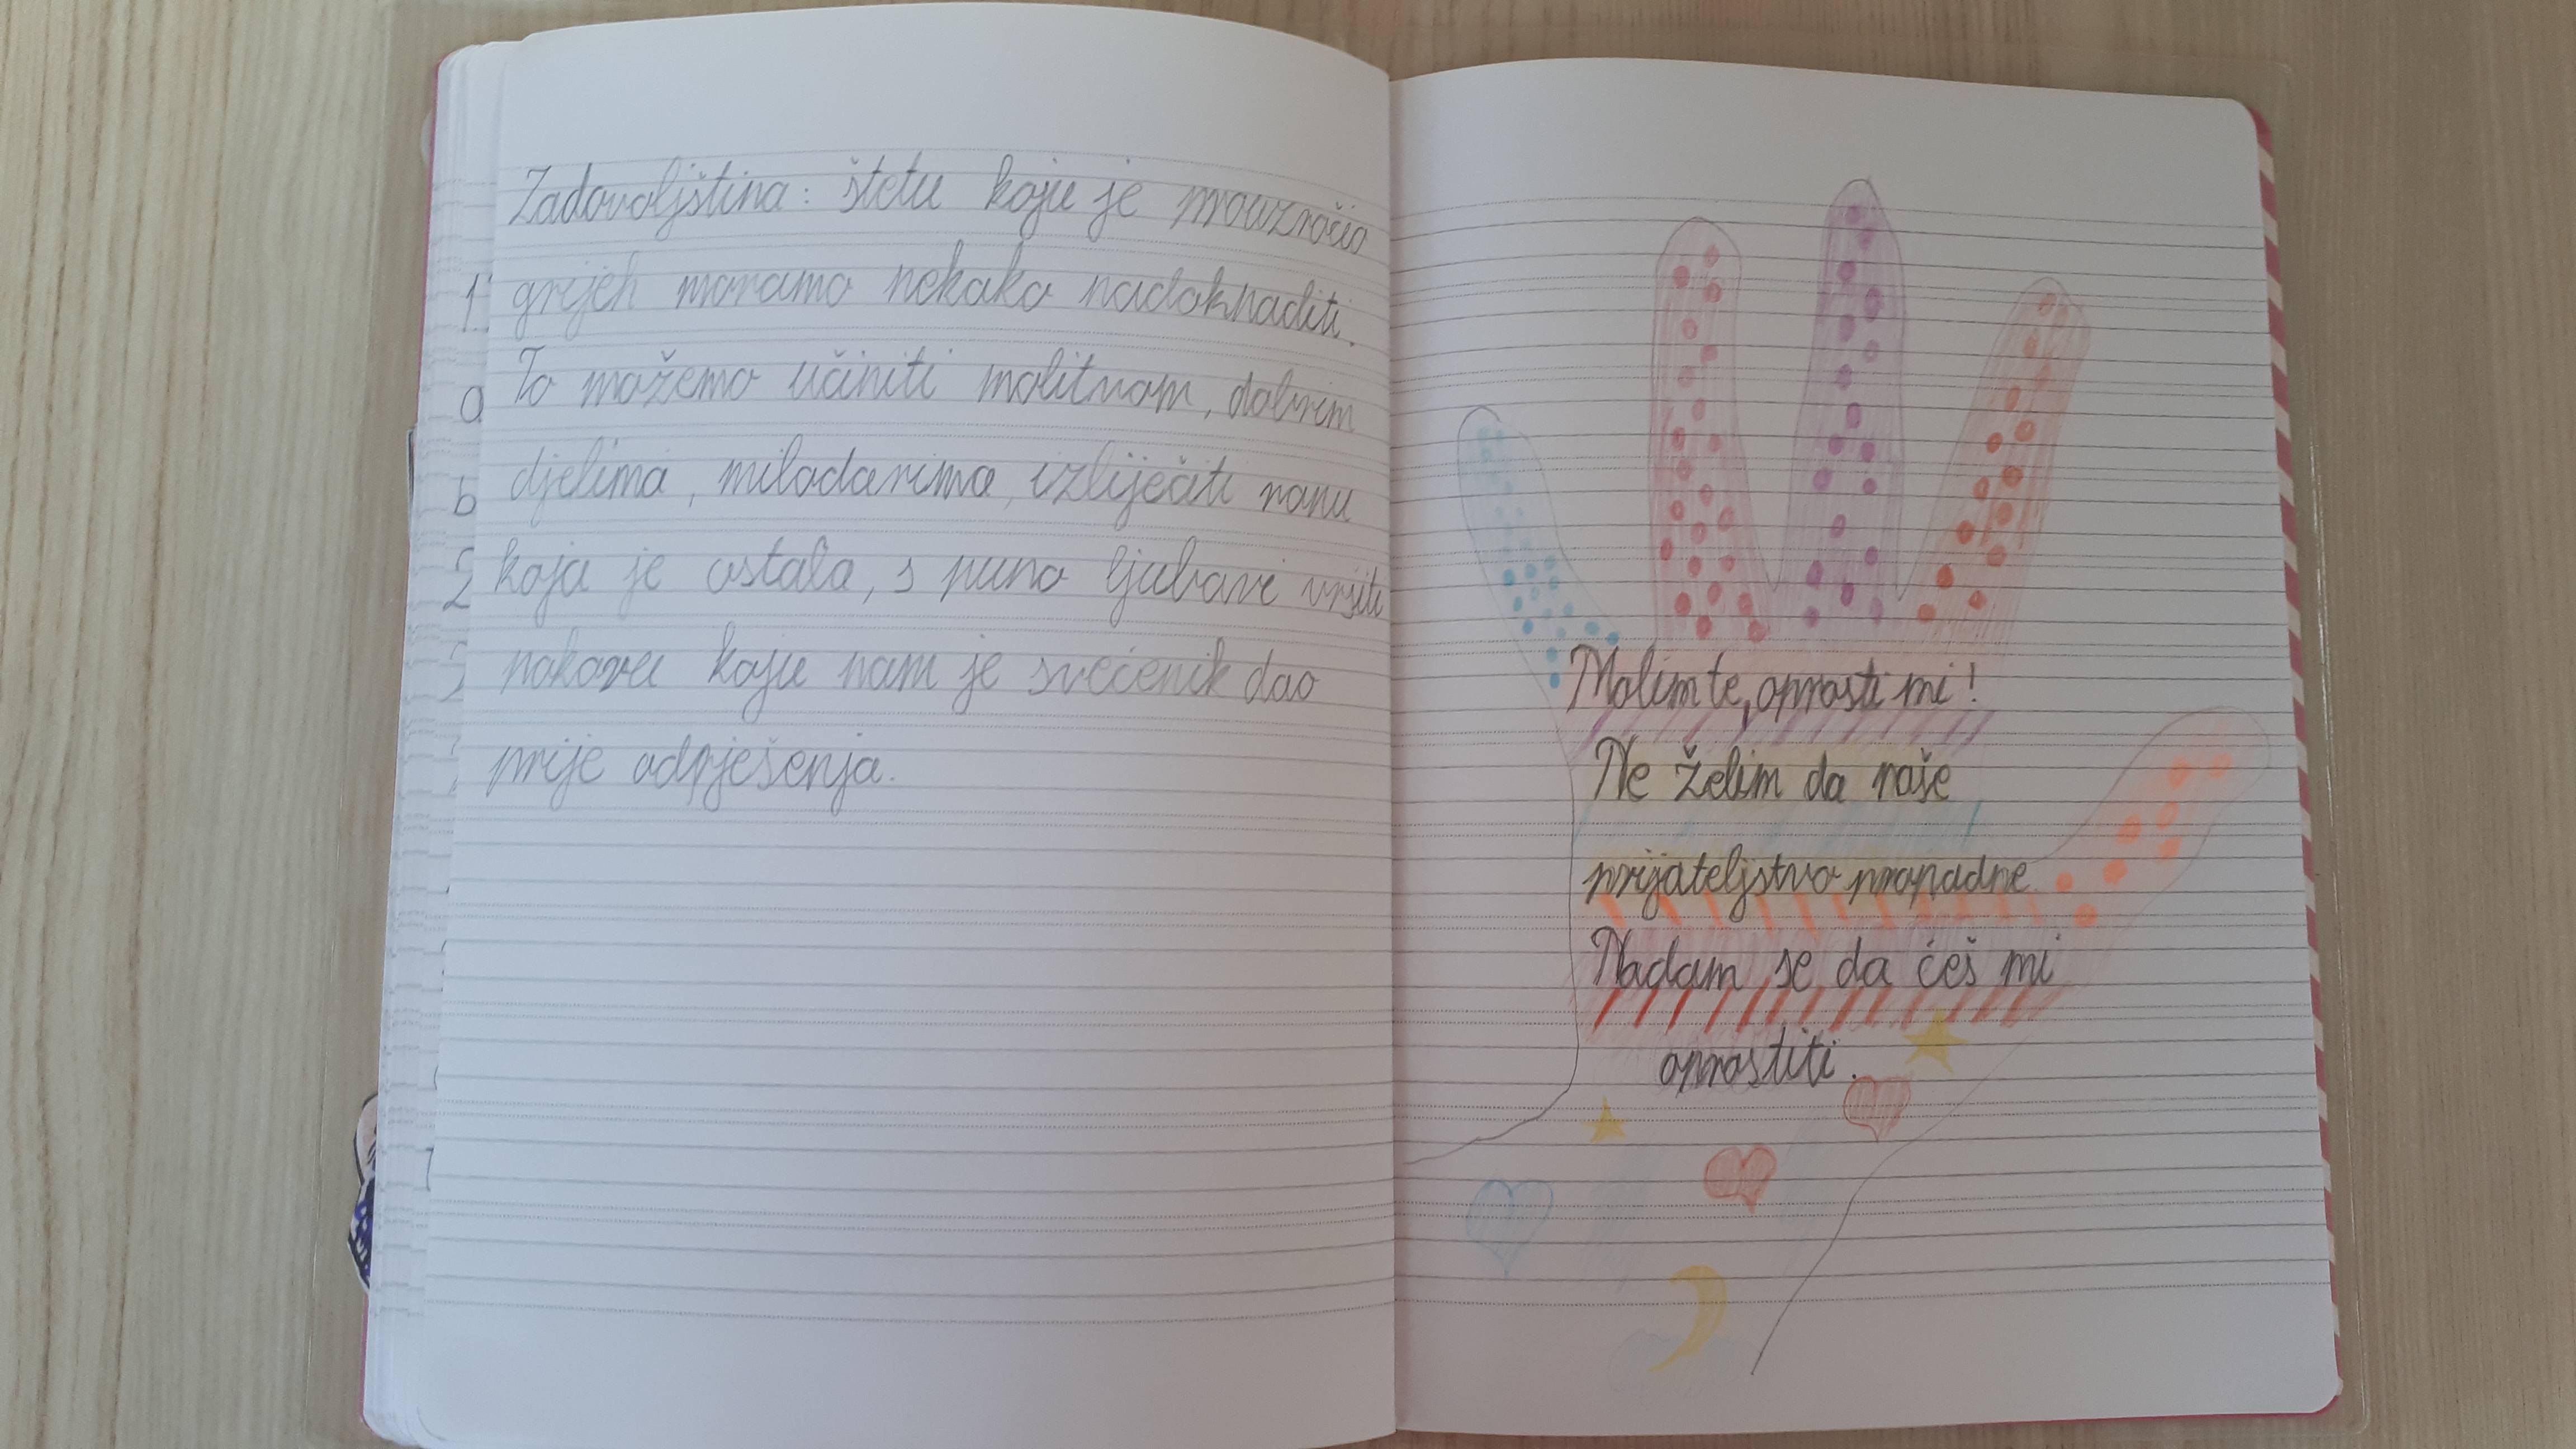 Zadovoljština: štetu koju je prouzročio
grijeh moramo nekako nadoknaditi.
To možemo učiniti molitvom, dobrim
djelima, milodarima, izliječiti ranu
koja je ostala, s puno ljubavi vršiti
pokoru koju nam je svećenik dao
prije odrješenja.
1
a
b
2
Molim te, oprosti mi!
Ne želim da naše
prijateljstvo propadne.
Nadam se da ćeš mi
oprostiti.